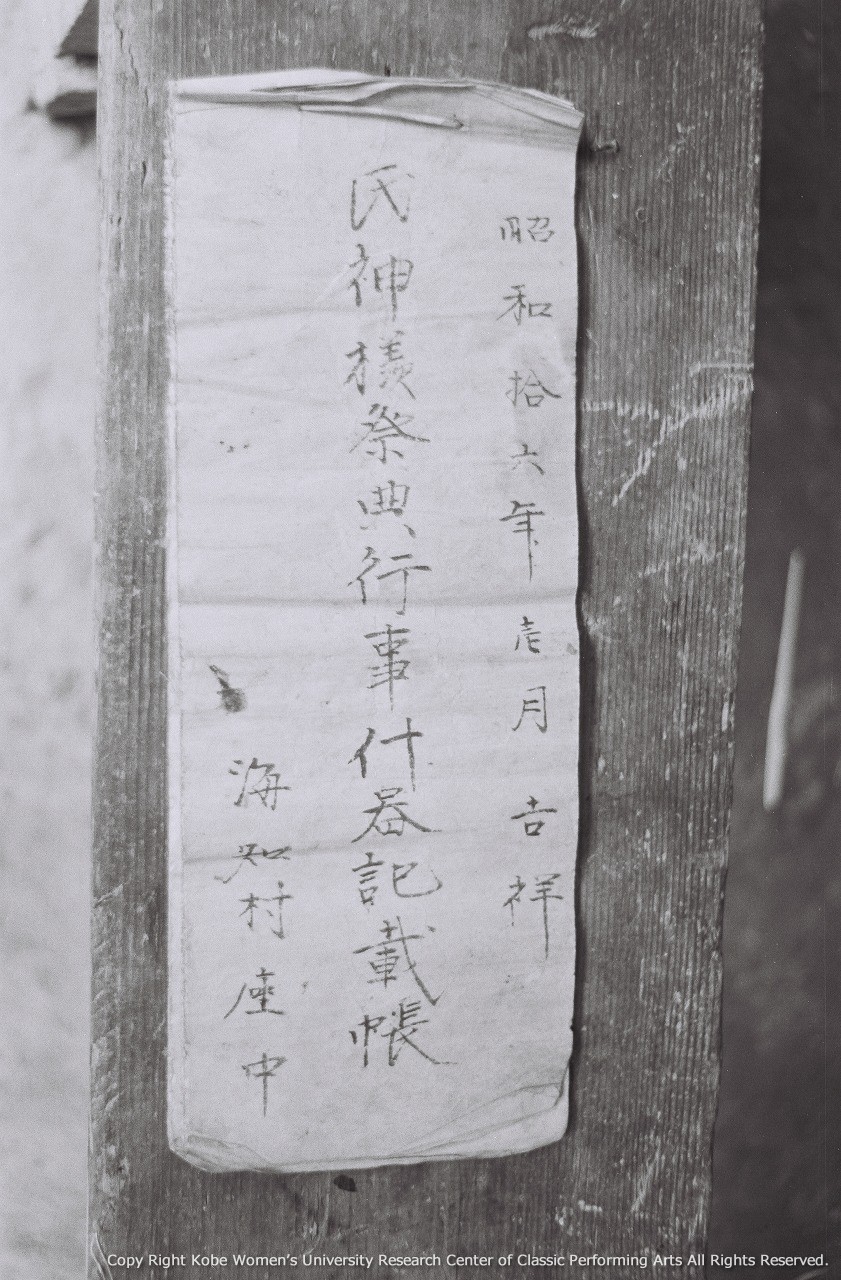 昭和拾六年壱月吉祥
氏神様祭典行事什器記載帳
海知村座中
Copy Right Kobe Women's University Research Center of Classic Performing Arts All Rights Reserved.